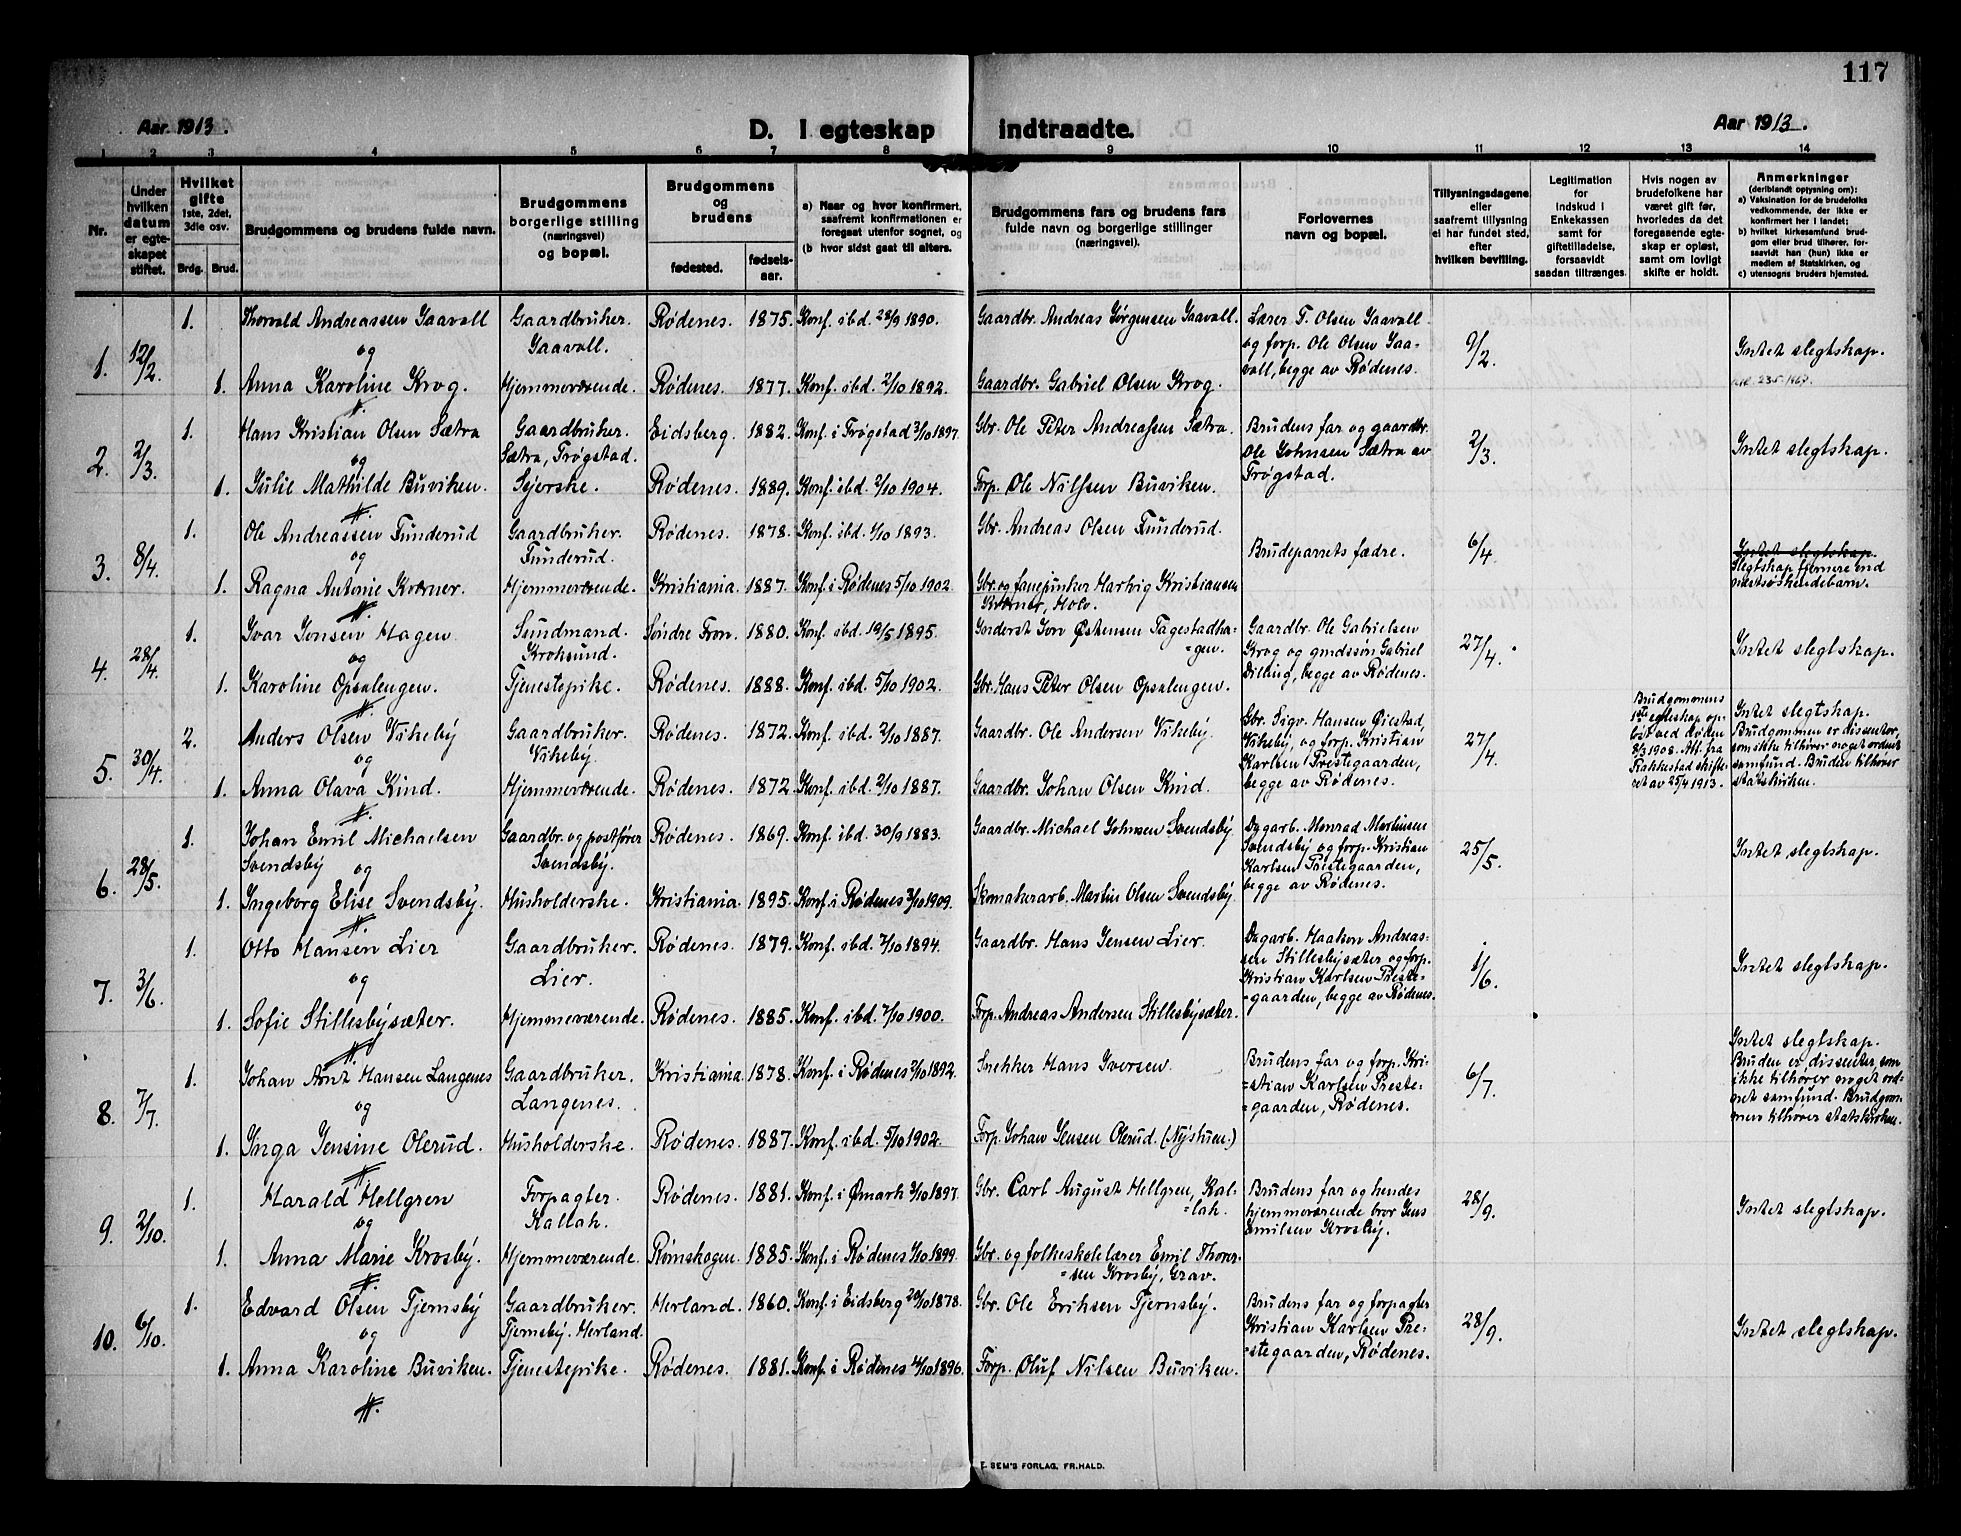 117
Aar. 1913.
D. I egteskap indtraadte.
Aar 1913.
1 2 3 4 5 6 7 8 9 10 11 12 13 14
Nr.
Under hvilken datum er egteskapet stiftet.
Hvilket gifte 1ste, 2det, 3die osv.
Brdg. Brud.
Brudgommens og brudens fulde navn.
Brudgommens borgerlige stilling (næringsvei) og bopæl.
Brudgommens og brudens
fødested.
fødselsaar.
a) Naar og hvor konfirmert, saafremt konfirmationen er foregaat utenfor sognet, og
(b hvor sidst gaat til alters.
Brudgommens fars og brudens fars fulde navn og borgerlige stillinger (næringsvei).
Forlovernes navn og bopæl.
Tillysningsdagene eller saafremt tillysning ei har fundet sted, efter hvilken bevilling.
Legitimation for indskud i Enkekassen samt for giftetilladelse, forsaavidt saadan tiltrænges.
Hvis nogen av brudefolkene har været gift før, hvorledes da det foregaaende egteskap er opløst, samt om lovligt skifte er holdt.
Anmerkninger (deriblandt oplysning om):
a) Vaksination for de brudefolks vedkommende, der ikke er konfirmert her i landet;
b) hvilket kirkesamfund brudgom eller brud tilhører, forsaavidt han (hun) ikke er medlem af Statskirken, og
c) utensogns bruders hjemsted.
1. 12/2.
1. Thorvald Andreassen Gaavoll Gaardbruker. Gaavoll. Rødenes. 1875. Konf. ibd. 28/9 1890. Gaardbr. Andreas Jørgensen Gaavoll.
og
1. Anna Karoline Krog. Hjemmeværende. Rødenes. 1877. Konf. ibd. 2/10 1892. Gaardbr. Gabriel Olsen Krog.
Lærer T. Olsen Gaavoll og forp. Ole Olsen Gaavoll, begge av Rødenes.
9/2.
Intet slegtskap.
2. 2/3.
1. Hans Kristian Olsen Sætra Gaardbruker. Sætra, Trøgstad. Eidsberg. 1882. Konf. i Trøgstad 3/10 1897. Gbr. Ole Peter Andreassen Sætra.
og
1. Julie Mathilde Buviken. Syerske. Rødenes. 1889. Konf. ibd. 2/10 1904. Forp. Ole Nilssen Buviken.
Brudens far og gaardbr. Ole Johnsen Sætra av Trøgstad.
2/3.
Intet slegtskap.
3. 8/4.
1. Ole Andreassen Funderud Gaardbruker. Funderud. Rødenes. 1878. Konf. ibd. 1/10 1893. Gbr. Andreas Olsen Funderud.
og
1. Ragna Antonie Kværner. Hjemmeværende. Kristiania. 1887. Konf. i Rødenes 5/10 1902. Gbr. og fanejunker Hartvig Kristiansen Kværner, Holo.
Brudeparrets fædre.
6/4.
Intet slegtskap.
Slegtskap fjernere end næstsøskendebarn.
4. 28/4.
1. Ivar Jonsen Hagen Sundmand. Kroksund. Søndre Fron. 1880. Konf. ibd. 19/5 1895. Inderst Jon Østensen Tagestadhagen.
og
1. Karoline Opsalengen. Tjenestepike. Rødenes. 1888. Konf. ibd. 5/10 1902. Gbr. Hans Peter Olsen Opsalengen.
Gaardbr. Ole Gabrielsen Krog og gmdssøn Gabriel Dilling, begge av Rødenes.
27/4.
Intet slegtskap.
5. 30/4.
2. Anders Olsen Vikeby Gaardbruker. Vikeby. Rødenes. 1872. Konf. ibd. 2/10 1887. Gaardbr. Ole Andersen Vikeby.
og
1. Anna Olava Kind. Hjemmeværende. Rødenes. 1872. Konf. ibd. 2/10 1887. Gaardbr. Johan Olsen Kind.
Gbr. Sigv. Hansen Øiestad, Vikeby, og forp. Kristian Karlsen Prestegaarden, begge av Rødenes.
27/4.
Brudgommens 1ste egteskap opløst ved døden 8/3 1908. Att. fra Rakkestad skifteret av 25/4 1913.
Intet slegtskap. Brudgommen er dissenter, som ikke tilhører noget ordnet samfund. Bruden tilhører statskirken.
6. 28/5.
1. Johan Emil Michaelsen Svendsby Gaardbr. og postfører Svendsby. Rødenes. 1869. Konf. ibd. 30/9 1883. Gaardbr. Michael Johnsen Svendsby
og
1. Ingeborg Elise Svendsby. Husholderske. Kristiania. 1895. Konf. i Rødenes 3/10 1909. Skomakerarb. Martin Olsen Svendsby.
Dagarb. Monrad Martinsen Svendsby og forp. Kristian Karlsen Prestegaarden, begge av Rødenes.
25/5.
Intet slegtskap.
7. 3/6.
1. Otto Hansen Lier Gaardbruker. Lier. Rødenes. 1879. Konf. ibd. 7/10 1894. Gaardbr. Hans Jensen Lier.
og
1. Sofie Stillesbysæter. Hjemmeværende. Rødenes. 1885. Konf. ibd. 7/10 1900. Forp. Andreas Andersen Stillesbysæter.
Dagarb. Haakon Andreassen Stillesbysæter og forp. Kristian Karlsen Prestegaarden, begge av Rødenes.
1/6.
Intet slegtskap.
8. 7/7.
1. Johan Arnt Hansen Langenes Gaardbruker. Langenes. Kristiania. 1878. Konf. i Rødenes 2/10 1892. Snekker Hans Iversen.
og
1. Inga Jensine Olerud. Husholderske. Rødenes. 1887. Konf. ibd. 5/10 1902. Forp. Johan Jensen Olerud. (Nystuen.)
Brudens far og forp. Kristian Karlsen Prestegaarden, Rødenes.
6/7.
Intet slegtskap. Bruden er dissenter, som ikke tilhører noget ordnet samfund. Brudgommen tilhører statskirken.
9. 2/10.
1. Harald Hellgren Forpagter. Kallak. Rødenes. 1881. Konf. i Ømark 3/10 1897. Gbr. Carl August Hellgren, Kallak.
og
1. Anna Marie Krosby. Hjemmeværende. Rømskogen. 1885. Konf. i Rødenes 1/10 1899. Gbr. og folkeskolelærer Emil Thoresen Krosby, Grav.
Brudens far og hendes hjemmeværende bror Jens Emilsen Krosby.
28/9.
Intet slegtskap.
10. 6/10.
1. Edvard Olsen Tjernsby Gaardbruker. Tjernsby. Herland. Herland. 1860. Konf. i Eidsberg 20/10 1878. Gbr. Ole Eriksen Tjernsby.
og
1. Anna Karoline Buviken. Tjenestepike. Rødenes. 1881. Konf. i Rødenes 4/10 1896. Forp. Oluf Nilsen Buviken.
Brudens far og forpagter Kristian Karlsen Prestegaarden, Rødenes.
28/9.
Intet slegtskap.
F. SEM'S FORLAG, FR.HALD.